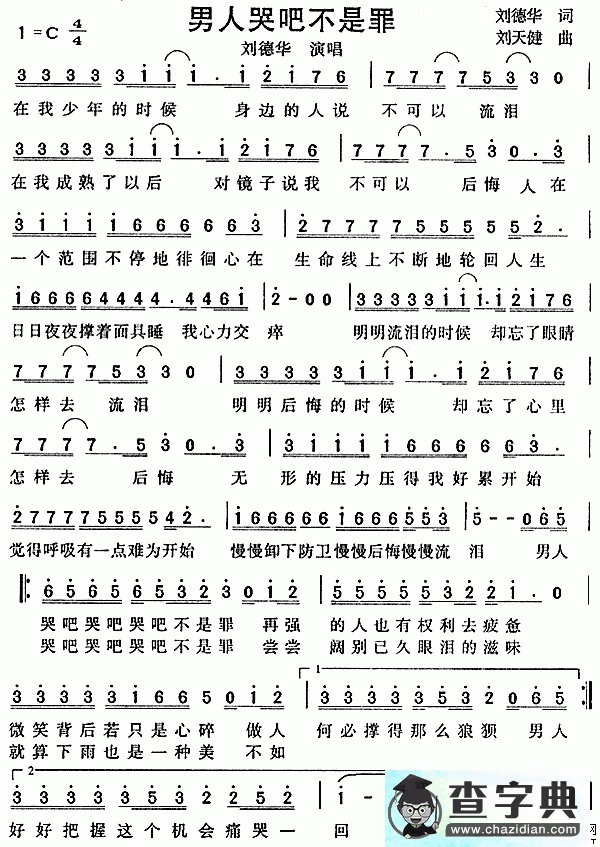 男人哭吧不是罪
1=C 4/4
刘德华 词
刘天健 曲
刘德华 演唱
3 3 3 3 3 i i i . i 2 i 7 6 | 7 7 7 7 5 3 3 0 |
在我少年的时候 身边的人说 不可以 流泪
3 3 3 3 3 i i i . i 2 i 7 6 | 7 7 7 7 . 5 3 0 . 3 |
在我成熟了以后 对镜子说我 不可以 后悔 人在
3 i i i i 6 6 6 6 6 3 | 2 7 7 7 7 5 5 5 5 5 2 . |
一个范围不停地徘徊心在 生命线上不断地轮回人生
i 6 6 6 6 6 4 4 4 4 . 4 4 6 i | 2 - 0 0 | 3 3 3 3 3 i i i . i 2 i 7 6 |
日日夜夜撑着面具睡 我心力交 瘁 明明流泪的时候 却忘了眼睛
7 7 7 7 5 3 3 0 | 3 3 3 3 3 i i i . i 2 i 7 6 |
怎样去 流泪 明明后悔的时候 却忘了心里
7 7 7 7 . 5 3 0 . 3 | 3 i i i i 6 6 6 6 6 3 |
怎样去 后悔 无 形的压力压得我好累开始
2 7 7 7 7 5 5 5 5 5 4 2 . | i 6 6 6 6 6 i 6 6 6 5 5 3 | 5 - - 0 6 5 |
觉得呼吸有一点难为开始 慢慢卸下防卫慢慢后悔慢慢流 泪 男人
6 5 6 5 6 5 3 2 3 0 i 2 | 3 5 5 5 3 5 3 2 2 i . 0 |
哭吧哭吧哭吧不是罪 再强 的人也有权利去疲惫
哭吧哭吧哭吧不是罪 尝尝 阔别已久眼泪的滋味
3 3 3 3 3 i 6 6 5 0 i 2 | 3 3 3 3 3 5 3 2 0 6 5
1
微笑背后若只是心碎 做人 何必撑得那么狼狈 男人
就算下雨也是一种美 不如
2
3 3 3 3 3 5 3 2 2 i | i -
好好把握这个机会痛哭一 回
查字典
www.chazidian.com